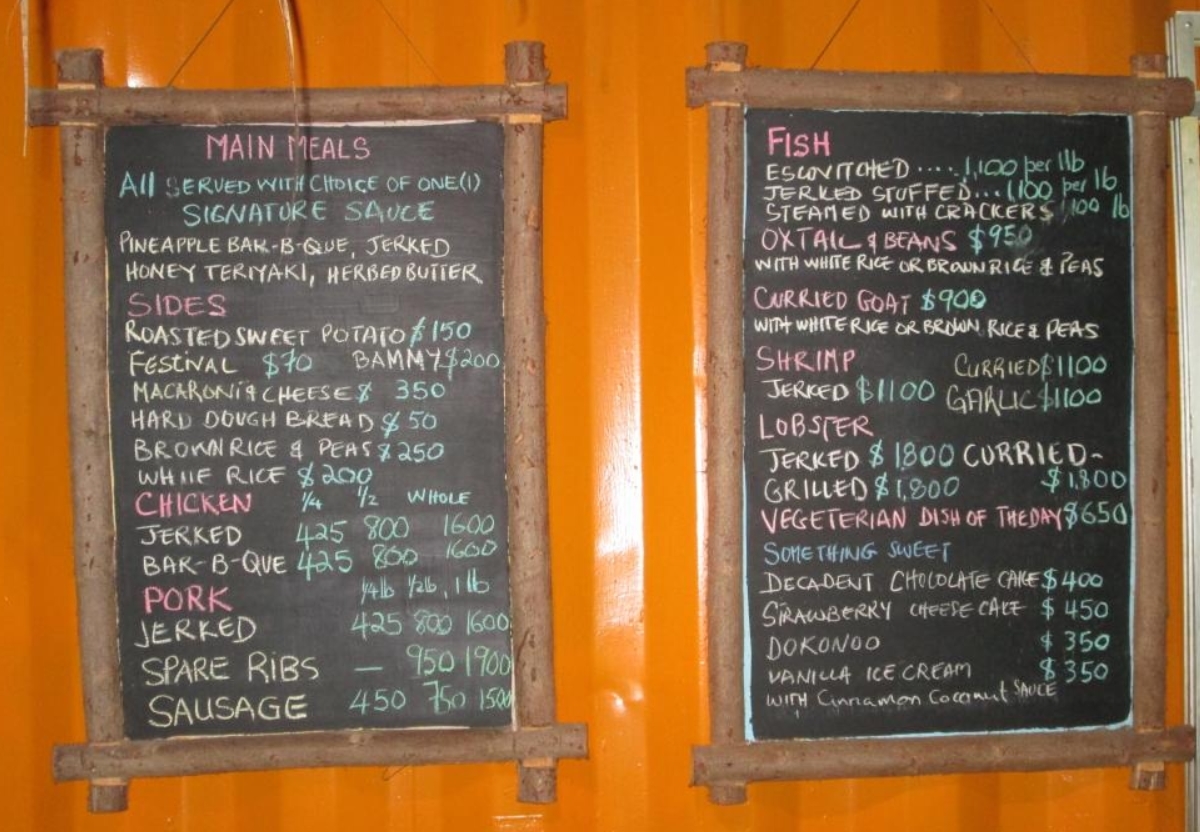 MAIN MEALS
All SERVED WITH CHOICE OF ONE(1)
SIGNATURE SAUCE
PINEAPPLE BAR-B-QUE, JERKED
HONEY TERIYAKI, HERBED BUTTER
SIDES
ROASTED SWEET POTATO $150
FESTIVAL $70 BAMMY $200
MACARONI & CHEESE $ 350
HARD DOUGH BREAD $ 50
BROWN RICE & PEAS $250
WHITE RICE $200
CHICKEN 1/4 1/2 WHOLE
JERKED 425 800 1600
BAR-B-QUE 425 800 1600
PORK 1/4lb 1/2lb, 1lb
JERKED 425 800 1600
SPARE RIBS — 950 1900
SAUSAGE 450 750 1500
FISH
ESCOVITCHED .... 1,100 per 1lb
JERKED STUFFED... 1,100 per lb
STEAMED WITH CRACKERS 1100 lb
OXTAIL & BEANS $950
WITH WHITE RICE OR BROWN RICE & PEAS
CURRIED GOAT $900
WITH WHITE RICE OR BROWN RICE & PEAS
SHRIMP CURRIED $1100
JERKED $1100 GARLIC $1100
LOBSTER
JERKED $1800 CURRIED-
GRILLED $1,800 $1,800
VEGETERIAN DISH OF THE DAY $650
SOMETHING SWEET
DECADENT CHOCOLATE CAKE $400
STRAWBERRY CHEESE CAKE $ 450
DOKONOO $ 350
VANILLA ICE CREAM $ 350
WITH Cinnamon Coconut SAUCE